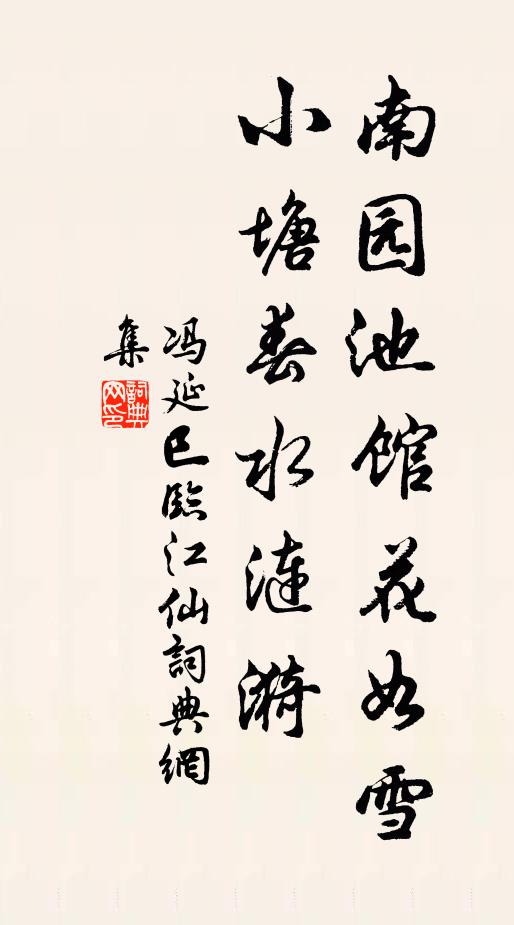 南园池馆花如雪
小塘春水涟漪
冯延巳臨江仙詞典網
集
詞典网印